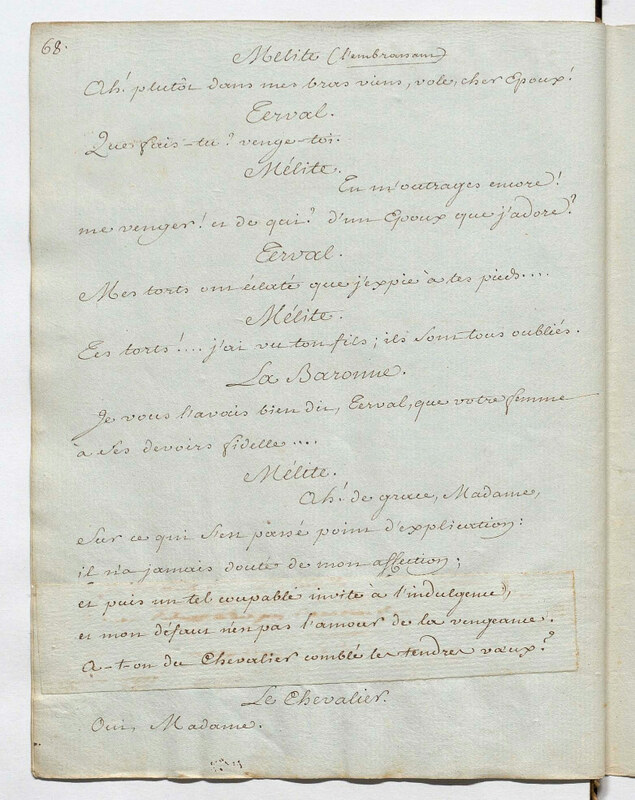 68.
Mélite (l'embrassant)
Ah! plutôt dans mes bras viens, vole, cher Epoux!
Terval.
Que fais-tu? venge-toi.
Mélite.
Tu m'outrages encore!
me venger! et de qui? d'un Epoux que j'adore?
Terval.
Mes torts ont éclaté que j'expie à tes pieds....
Mélite.
Tes torts!.... j'ai vu ton fils; ils sont tous oubliés.
La Baronne.
Je vous l'avais bien dit, Terval, que votre femme
à ses devoirs fidelle....
Mélite.
Ah! de grace, Madame,
Sur ce qui s'est passé point d'explication:
il n'a jamais douté de mon affection;
et puis un tel coupable invite à l'indulgence,
et mon défaut n'est pas l'amour de la vengeance.
A-t-on du Chevalier comblé les tendres vœux?
Le Chevalier.
Oui, Madame.